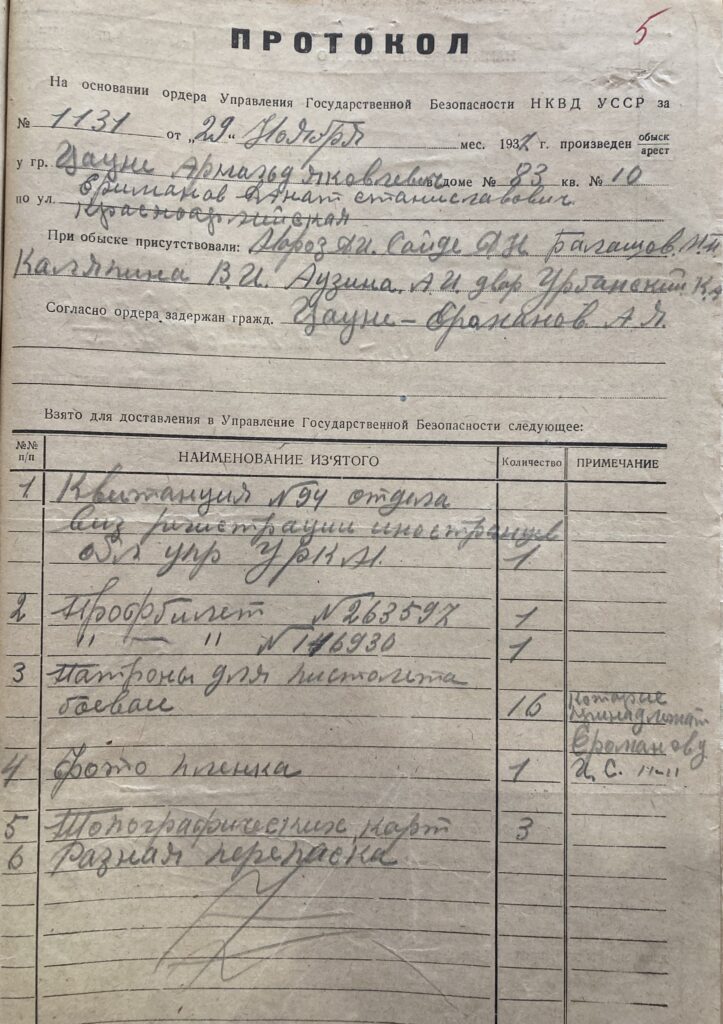 5
ПРОТОКОЛ
На основании ордера Управления Государственной Безопасности НКВД УССР за
№ 1131 от „29“ Ноября мес. 1937 г. произведен обыск
арест
у гр. Цауне Армальд Яковлевич в доме № 83 кв. № 10
Ериманов Станиславович
по ул. Красноармейская
При обыске присутствовали: Мороз А.И. Сайде А.Н. Балашов. И.П.
Каляпина В.И. Аузина. А.И. двор Урбанский К.А
Согласно ордера задержан гражд. Цауне – Ероманов А.Я.
Взято для доставления в Управление Государственной Безопасности следующее:
№№ п/п НАИМЕНОВАНИЕ ИЗ'ЯТОГО Количество ПРИМЕЧАНИЕ
1 Квитанция №94 отдела
виз регистрации иностранцев
обл упр УРКМ. 1
2 Профбилет №263597 1
" — " №116930 1
3 Патроны для пистолета
боевые 16 которые
принадлежат
Ероманову
4 фото пленка 1 И. С.
5 Топографических карт 3
6 Разная переписка